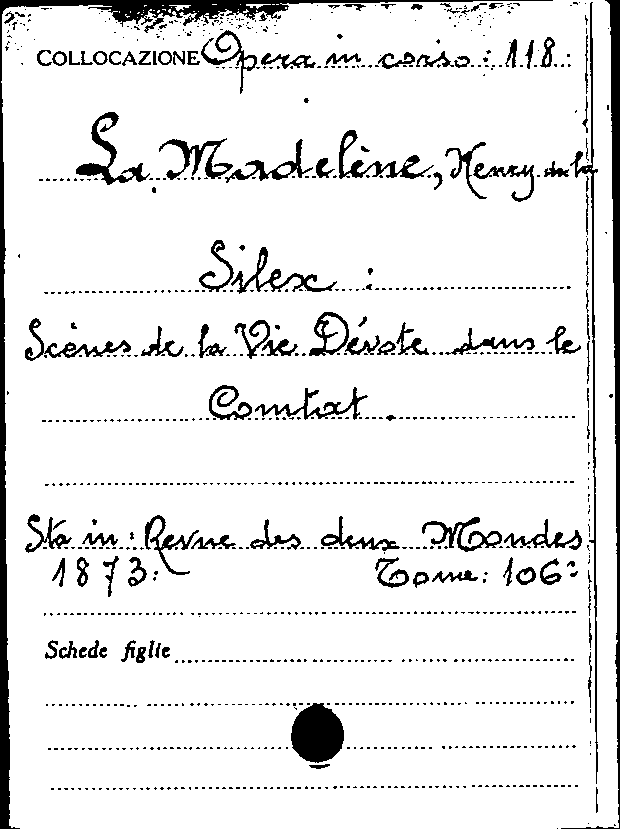 COLLOCAZIONE Opera in corso: 118.
La Madelène, Henry de la
Silex :
Scènes de la Vie Dévote dans le
Comtat.
Sta in: Revue des deux Mondes.
1873. Tome: 106º
Schede figlie